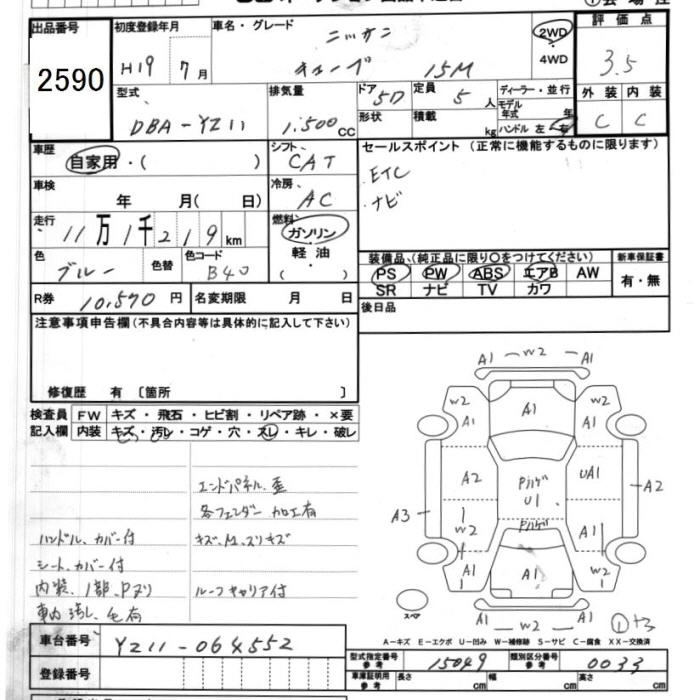 出品番号 初度登録年月 車名・グレード ニッサン 2WD ・ 4WD 評価点
2590 H19 年 7月 キューブ 15M 3.5
型式 DBA-YZ11 排気量 1.500cc ドア 5D 定員 5人 ディーラー・並行 外装 内装
形状 積載 kg モデル年式 年 ハンドル 左・右 C C
車歴 自家用・( ) シフト CAT セールスポイント (正常に機能するものに限ります)
車検 年 月( 日) 冷房 AC ETC
ナビ
走行 11万1千219km 燃料 ガソリン 軽油 ( )
色 ブルー 色替 色コード B40 装備品、(純正品に限り○をつけてください) 新車保証書
PS PW ABS エアB AW 有・無
SR ナビ TV カワ
R券 10,570円 名変期限 月 日 後日品
注意事項申告欄(不具合内容等は具体的に記入して下さい)
修復歴 有 〔箇所 〕
検査員 FW キズ・飛石・ヒビ割・リペア跡・×要
記入欄 内装 キズ・汚レ・コゲ・穴・スレ・キレ・破レ
エンドパネル、歪
各フェンダー 加工有
ハンドル、カバー付 キズ、M、スリキズ
シート、カバー付
内装、1部、Pヌリ ルーフキャリア付
車内汚レ、毛有
A1 W2 A1
W2 A1 W2
A1 A1
A2 Pハゲ UA1
U1
A3 A2
W2 Pハゲ A1
A1 A1 W2
スペア
A1 W2 A1 ①+3
A-キズ E-エクボ U-凹み W-補修跡 S-サビ C-腐食 XX-交換済
車台番号 YZ11-064552
型式指定番号 参考 15049 類別区分番号 参考 0033
登録番号 車庫証明用 参考 長さ cm 幅 cm 高さ cm